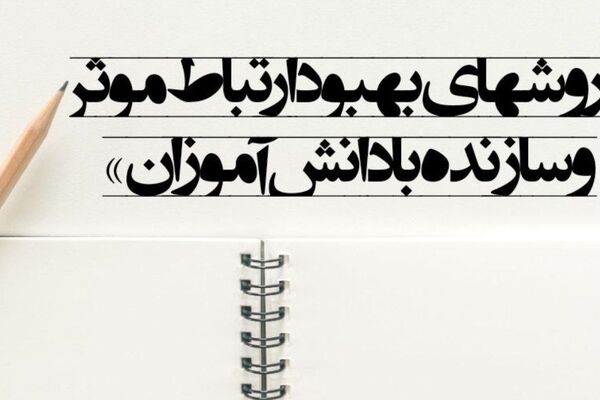 روشهای بهبود ارتباط موثر
وسازنده با دانش آموزان»